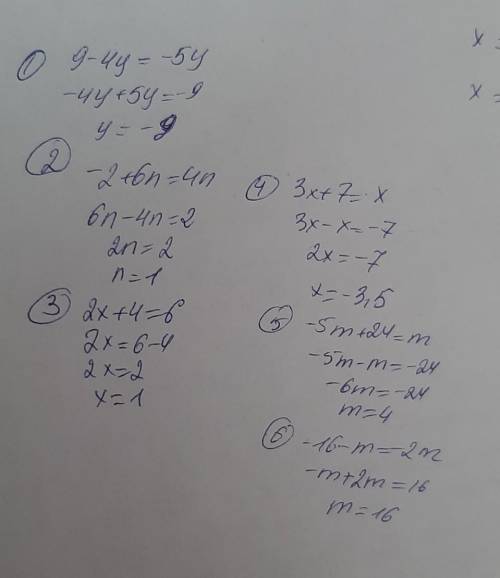 1
9-4y=-5y
-4y+5y=-9
y=-9
2
-2+6n=4n
6n-4n=2
2n=2
n=1
3
2x+4=6
2x=6-4
2x=2
x=1
4
3x+7=x
3x-x=-7
2x=-7
x=-3,5
5
-5m+24=m
-5m-m=-24
-6m=-24
m=4
6
-16-m=-2m
-m+2m=16
m=16
x=
x=